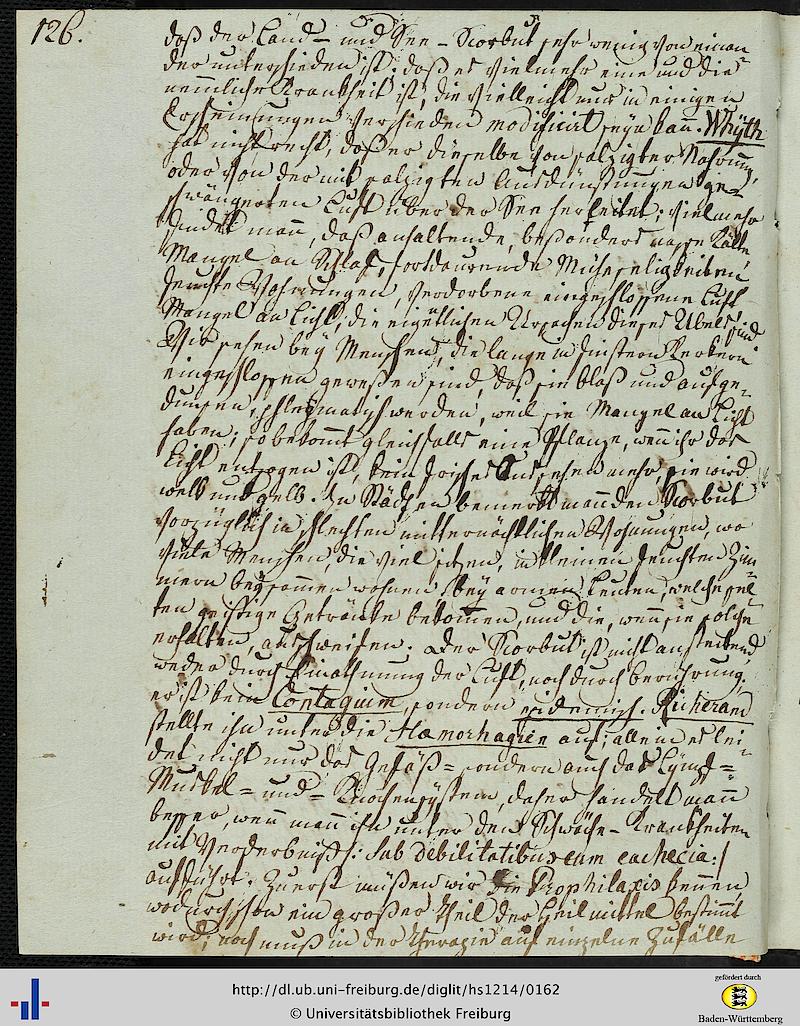 126.
daß der Land- und See-Scorbut sehr wenig von einan
der unterschieden ist: daß es vielmehr eine und die
nemmliche Krankheit ist, die vielleicht nur in einigen
Erscheinungen verschieden modificirt seyn kann. Whyth
hat nicht recht, daß er dieselbe von salzigter Nahrung,
oder von der mit salzigten Ausdünstungen ge-
schwängerten Luft über der See herleitet; vielmehr
findet mann, daß anhaltende, besonders nasse Kälte
Mangel an Schlaf, fortdaurende Müheseligkeiten
feuchte Wohnungen, verdorbene eingeschlossene Luft
Mangel an Licht, die eigentlichen Ursachen dieses Übels sind
Wir sehen bey Menschen, die lange in finstern Kerkern
eingeschlossen geweßen sind, daß sie blaß und aufge-
dunsen, phlegmatisch werden, weil sie Mangel an Licht
haben; so bekommt gleichfalls eine Pflanze, wenn ihr das
Licht entzogen ist, kein frisches Aussehen mehr, sie wird
welk und gelb. In Städten bemerkt mann den Scorbut
vorzüglich in schlechten mitternächtlichen Wohnungen, wo
viele Menschen, die viel sitzen, in kleinen feuchten Zim
mern beysammen wohnen, bey armen Leuten, welche sel-
ten geistige Getränke bekommen, und die, wenn sie solche
erhalten, ausschweifen. Der Scorbut ist nicht ansteckend
weder durch Einathmung der Luft, noch durch Berührung.
er ist kein Contagium, sondern epidemisch. Richerand
stellte ihn unter die Hæmorhagien auf; allein es lei-
det nicht nur das Gefäß= sondern auch das Lympf=
Muskel= und= Knochensystem, daher handelt mann
besser, wenn mann ihn unter den Schwäche-Krankheiten
mit Verderbniß /: sub debilitatibus cum cachecia:/
aufführt. Zuerst müßen wir die Prophilaxis kennen,
wodurch schon ein großer Theil der Heilmittel bestimmt
wird; noch muß in der Therapie auf einzelne Zufälle
http://dl.ub.uni-freiburg.de/diglit/hs1214/0162
© Universitätsbibliothek Freiburg
gefördert durch
Baden-Württemberg